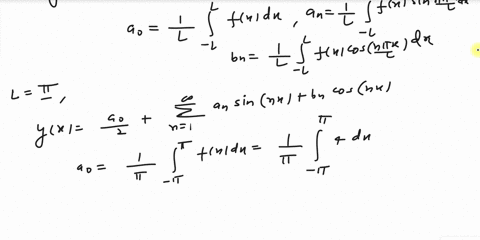 a₀ = 1/L ∫_{-L}^{L} f(x) dx , aₙ = 1/L ∫_{-L}^{L} f(x) sin nπx/L dx
bₙ = 1/L ∫_{-L}^{L} f(x) cos(nπx/L) dx
L = π ,
y(x) = a₀/2 + ∑_{n=1}^{∞} aₙ sin (nx) + bₙ cos (nx)
a₀ = 1/π ∫_{-π}^{π} f(x) dx = 1/π ∫_{-π}^{π} 4 dx